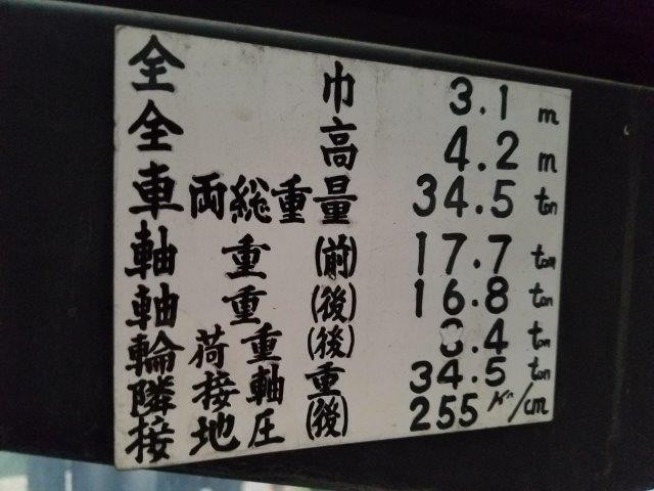 全巾 3.1 m
全高 4.2 m
車両総重量 34.5 ton
軸重(前) 17.7 ton
軸重(後) 16.8 ton
輪荷重(後) .4 ton
隣接軸重 34.5 ton
接地圧(後) 255 /cm